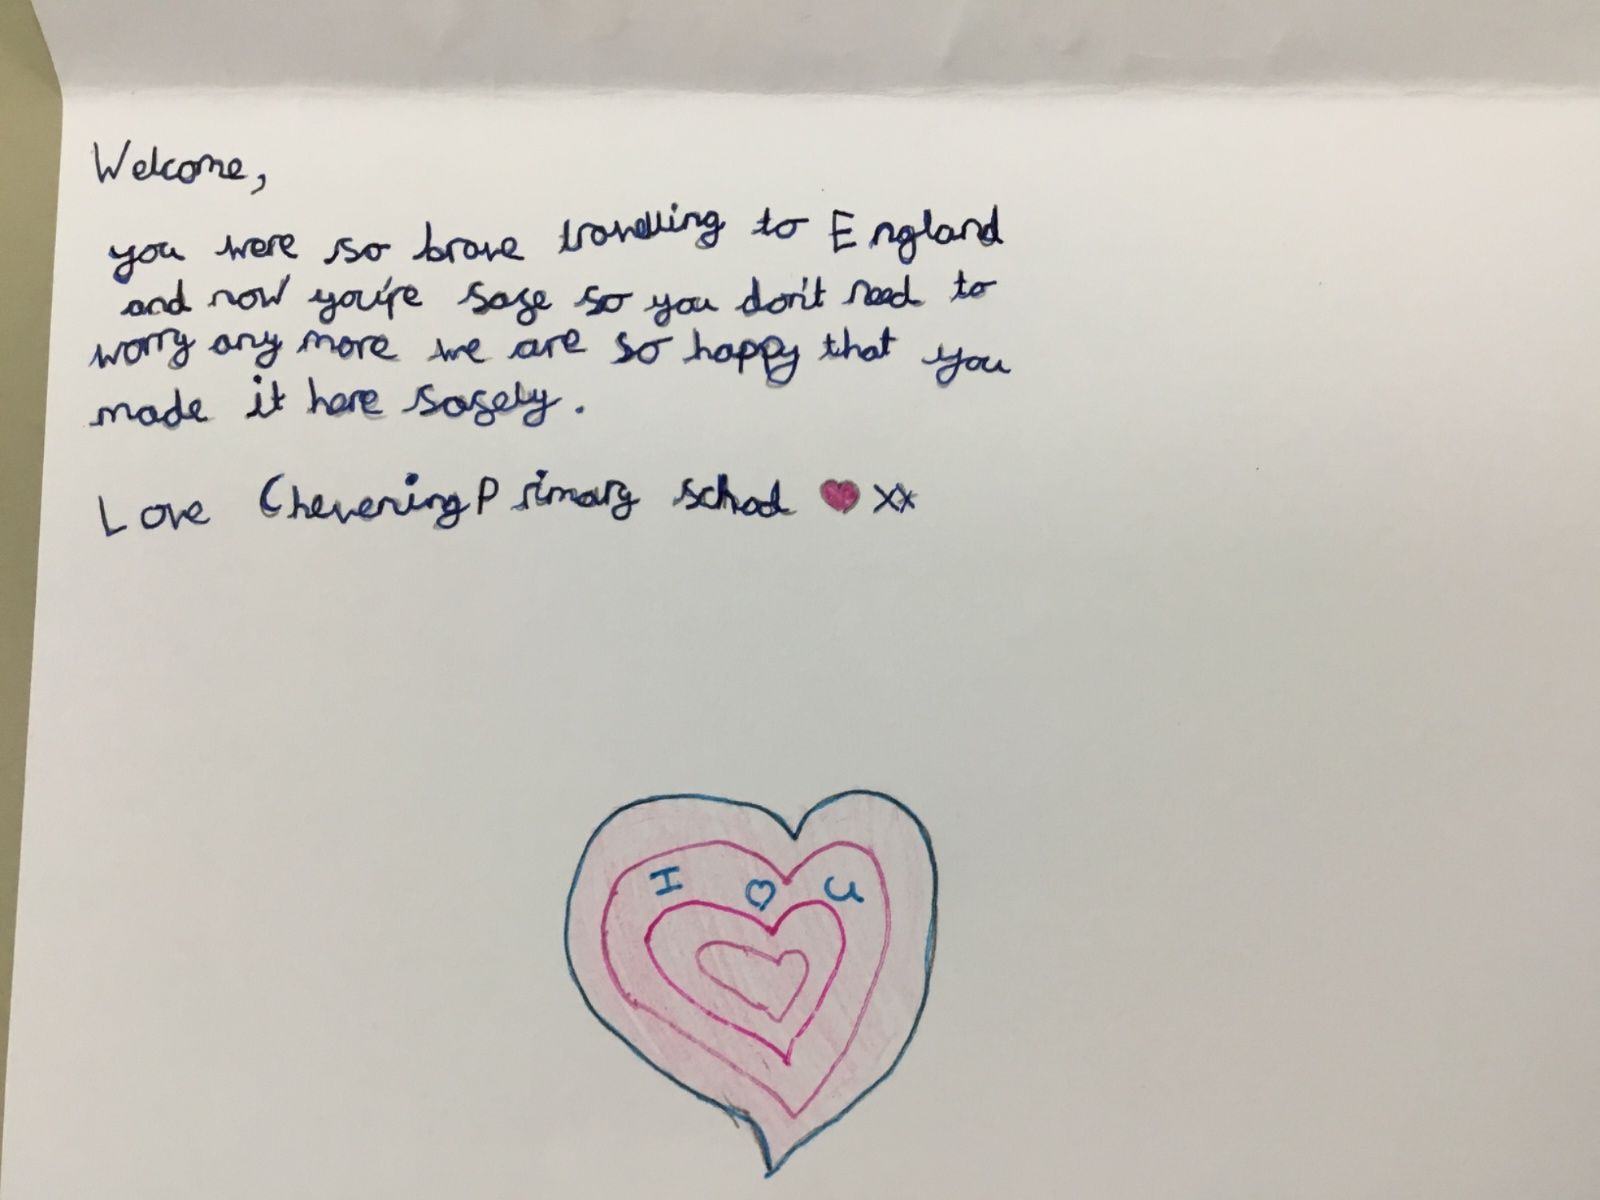 Welcome,
you were so brave travelling to England
and now you're safe so you don't need to
worry any more we are so happy that you
made it here safely.
Love Chevening Primary school ♥ xx
I ♡ U